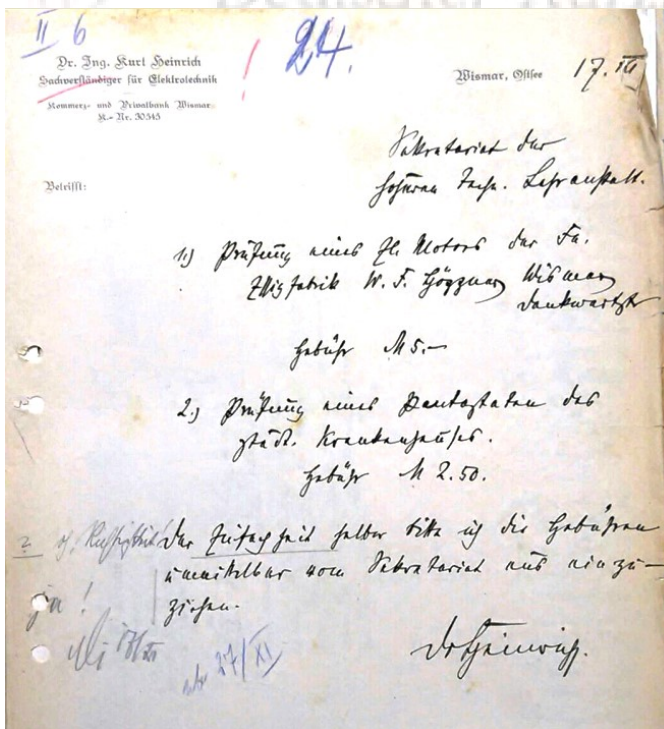 II 6
24.
Dr. Ing. Kurt Heinrich
Sachverständiger für Elektrotechnik
Kommerz- und Privatbank Wismar
K.-Nr. 30545
!
Wismar, Ostsee 17. III
Sekretariat der
höheren Techn. Lehranstalt.
Betrifft:
1.) Prüfung eines El. Motors der Fa.
W. F. Wismar
Dankwartstr
Gebühr M 5.–
2.) Prüfung eines Pantostaten des
städt. Krankenhauses.
Gebühr M 2.50.
Der Einfachheit halber bitte ich die Gebühren
unmittelbar vom Sekretariat aus einzu-
ziehen.
?
ja!
27/XI
Dr Heinrich.